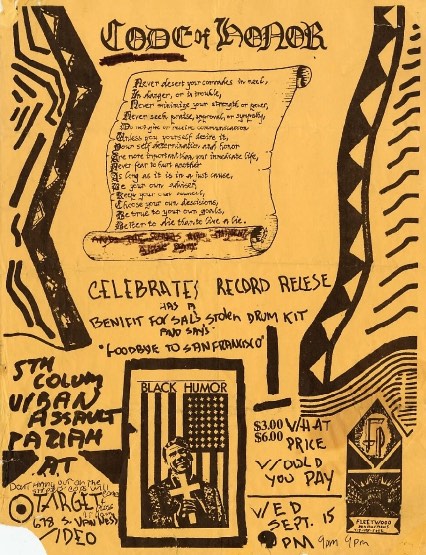 CODE of HONOR
Never desert your comrades in need,
In danger, or in trouble,
Never minimize your strength or power,
Never seek praise, approval, or sympathy,
Do not give or receive communication
Unless you yourself desire it,
Your self determination and honor
Are more important than your immediate life,
Never fear to hurt another
As long as it is in a just cause,
Be your own adviser,
Keep your own counsel,
Choose your own descisions,
Be true to your own goals,
Better to die than to live a lie.
CELEBRATES RECORD RELESE
HAS A
BENIFIT FOR SAL'S STOLEN DRUM KIT
AND SAYS
"GOODBYE TO SAN FRANXISO"
5TH
COLUM
URBAN
ASSAULT
PARIAH
AT
DONT HANG OUT ON THE
STEPS OR COPS WILL
TARGET
678 S. VAN NESS
VIDEO
BLACK HUMOR
$3.00 WHAT
$6.00 PRICE
WOULD
YOU PAY
WED
SEPT. 15
9PM 9pm 9pm
FP
FLEETWOOD